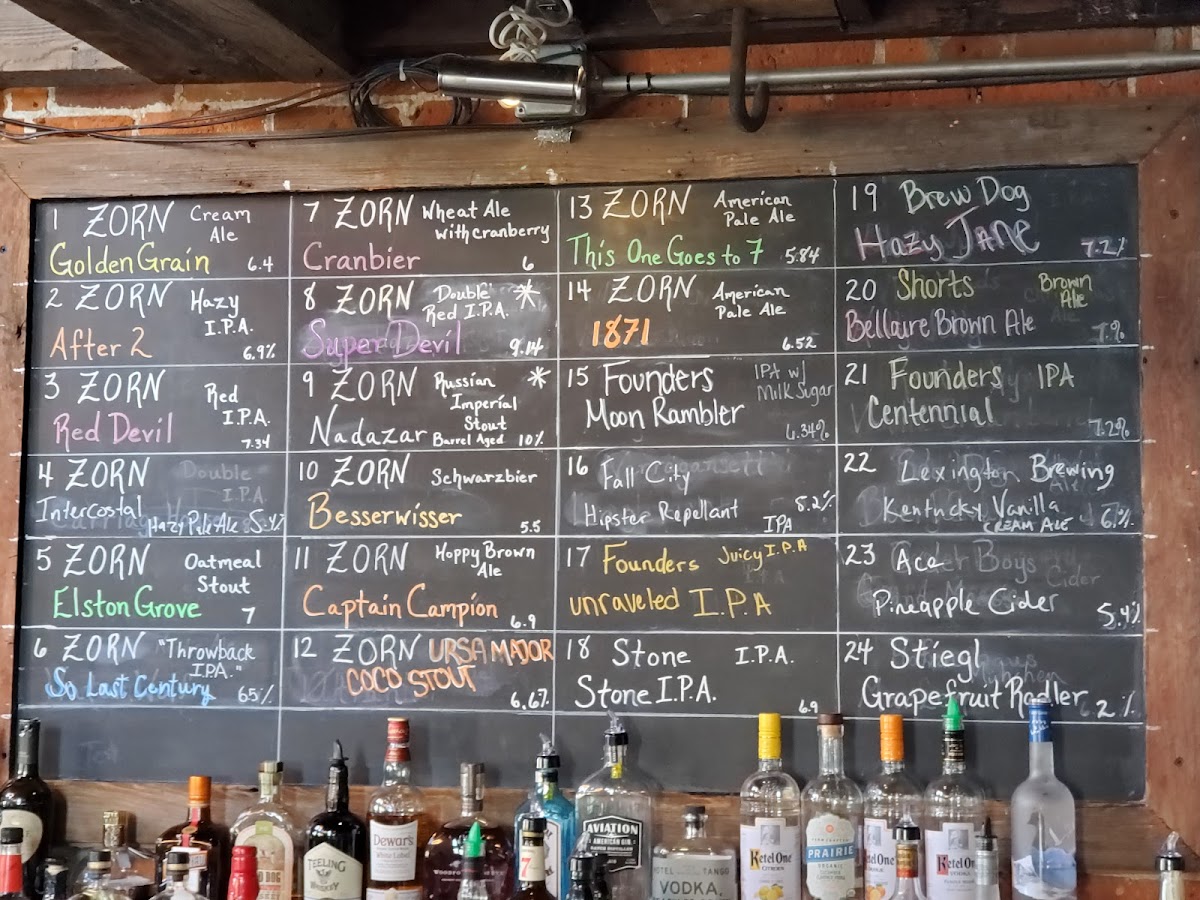 1 ZORN Cream
Ale
Golden Grain 6.4
2 ZORN Hazy
I.P.A.
After 2 6.9%
3 ZORN Red
I.P.A.
Red Devil 7.34
4 ZORN Double
I.P.A.
Intercostal
Hazy Pale Ale 5.4%
5 ZORN Oatmeal
Stout
Elston Grove 7
6 ZORN "Throwback
I.P.A."
So Last Century 65%
7 ZORN Wheat Ale
with cranberry
Cranbier 6
8 ZORN Double *
Red I.P.A.
Super Devil 9.14
9 ZORN Russian *
Imperial
Stout
Nadazar Barrel Aged 10%
10 ZORN Schwarzbier
Besserwisser 5.5
11 ZORN Hoppy Brown
Ale
Captain Campion 6.9
12 ZORN URSA MAJOR
COCO STOUT
6.67.
13 ZORN American
Pale Ale
This One Goes to 7 5.84
14 ZORN American
Pale Ale
1871 6.52
15 Founders IPA w/
Milk Sugar
Moon Rambler
6.34%
16 Fall City
Hipster Repellant 5.2%
IPA
17 Founders Juicy I.P.A
unraveled I.P.A
18 Stone I.P.A.
Stone I.P.A. 6.9
19 Brew Dog
Hazy JANE 7.2%
20 Shorts Brown
Ale
Bellaire Brown Ale 7%
21 Founders IPA
Centennial 7.2%
22 Lexington Brewing
Kentucky Vanilla
CREAM ALE
23 Ace
Cider
Pineapple Cider 5.4%
24 Stiegl
Grapefruit Radler 2%
Dewar's
White Label
TEELING
WHISKEY
AVIATION
AMERICAN GIN
TANGO
VODKA
Ketel One
PRAIRIE
ORGANIC
Ketel One
Ketel One
7